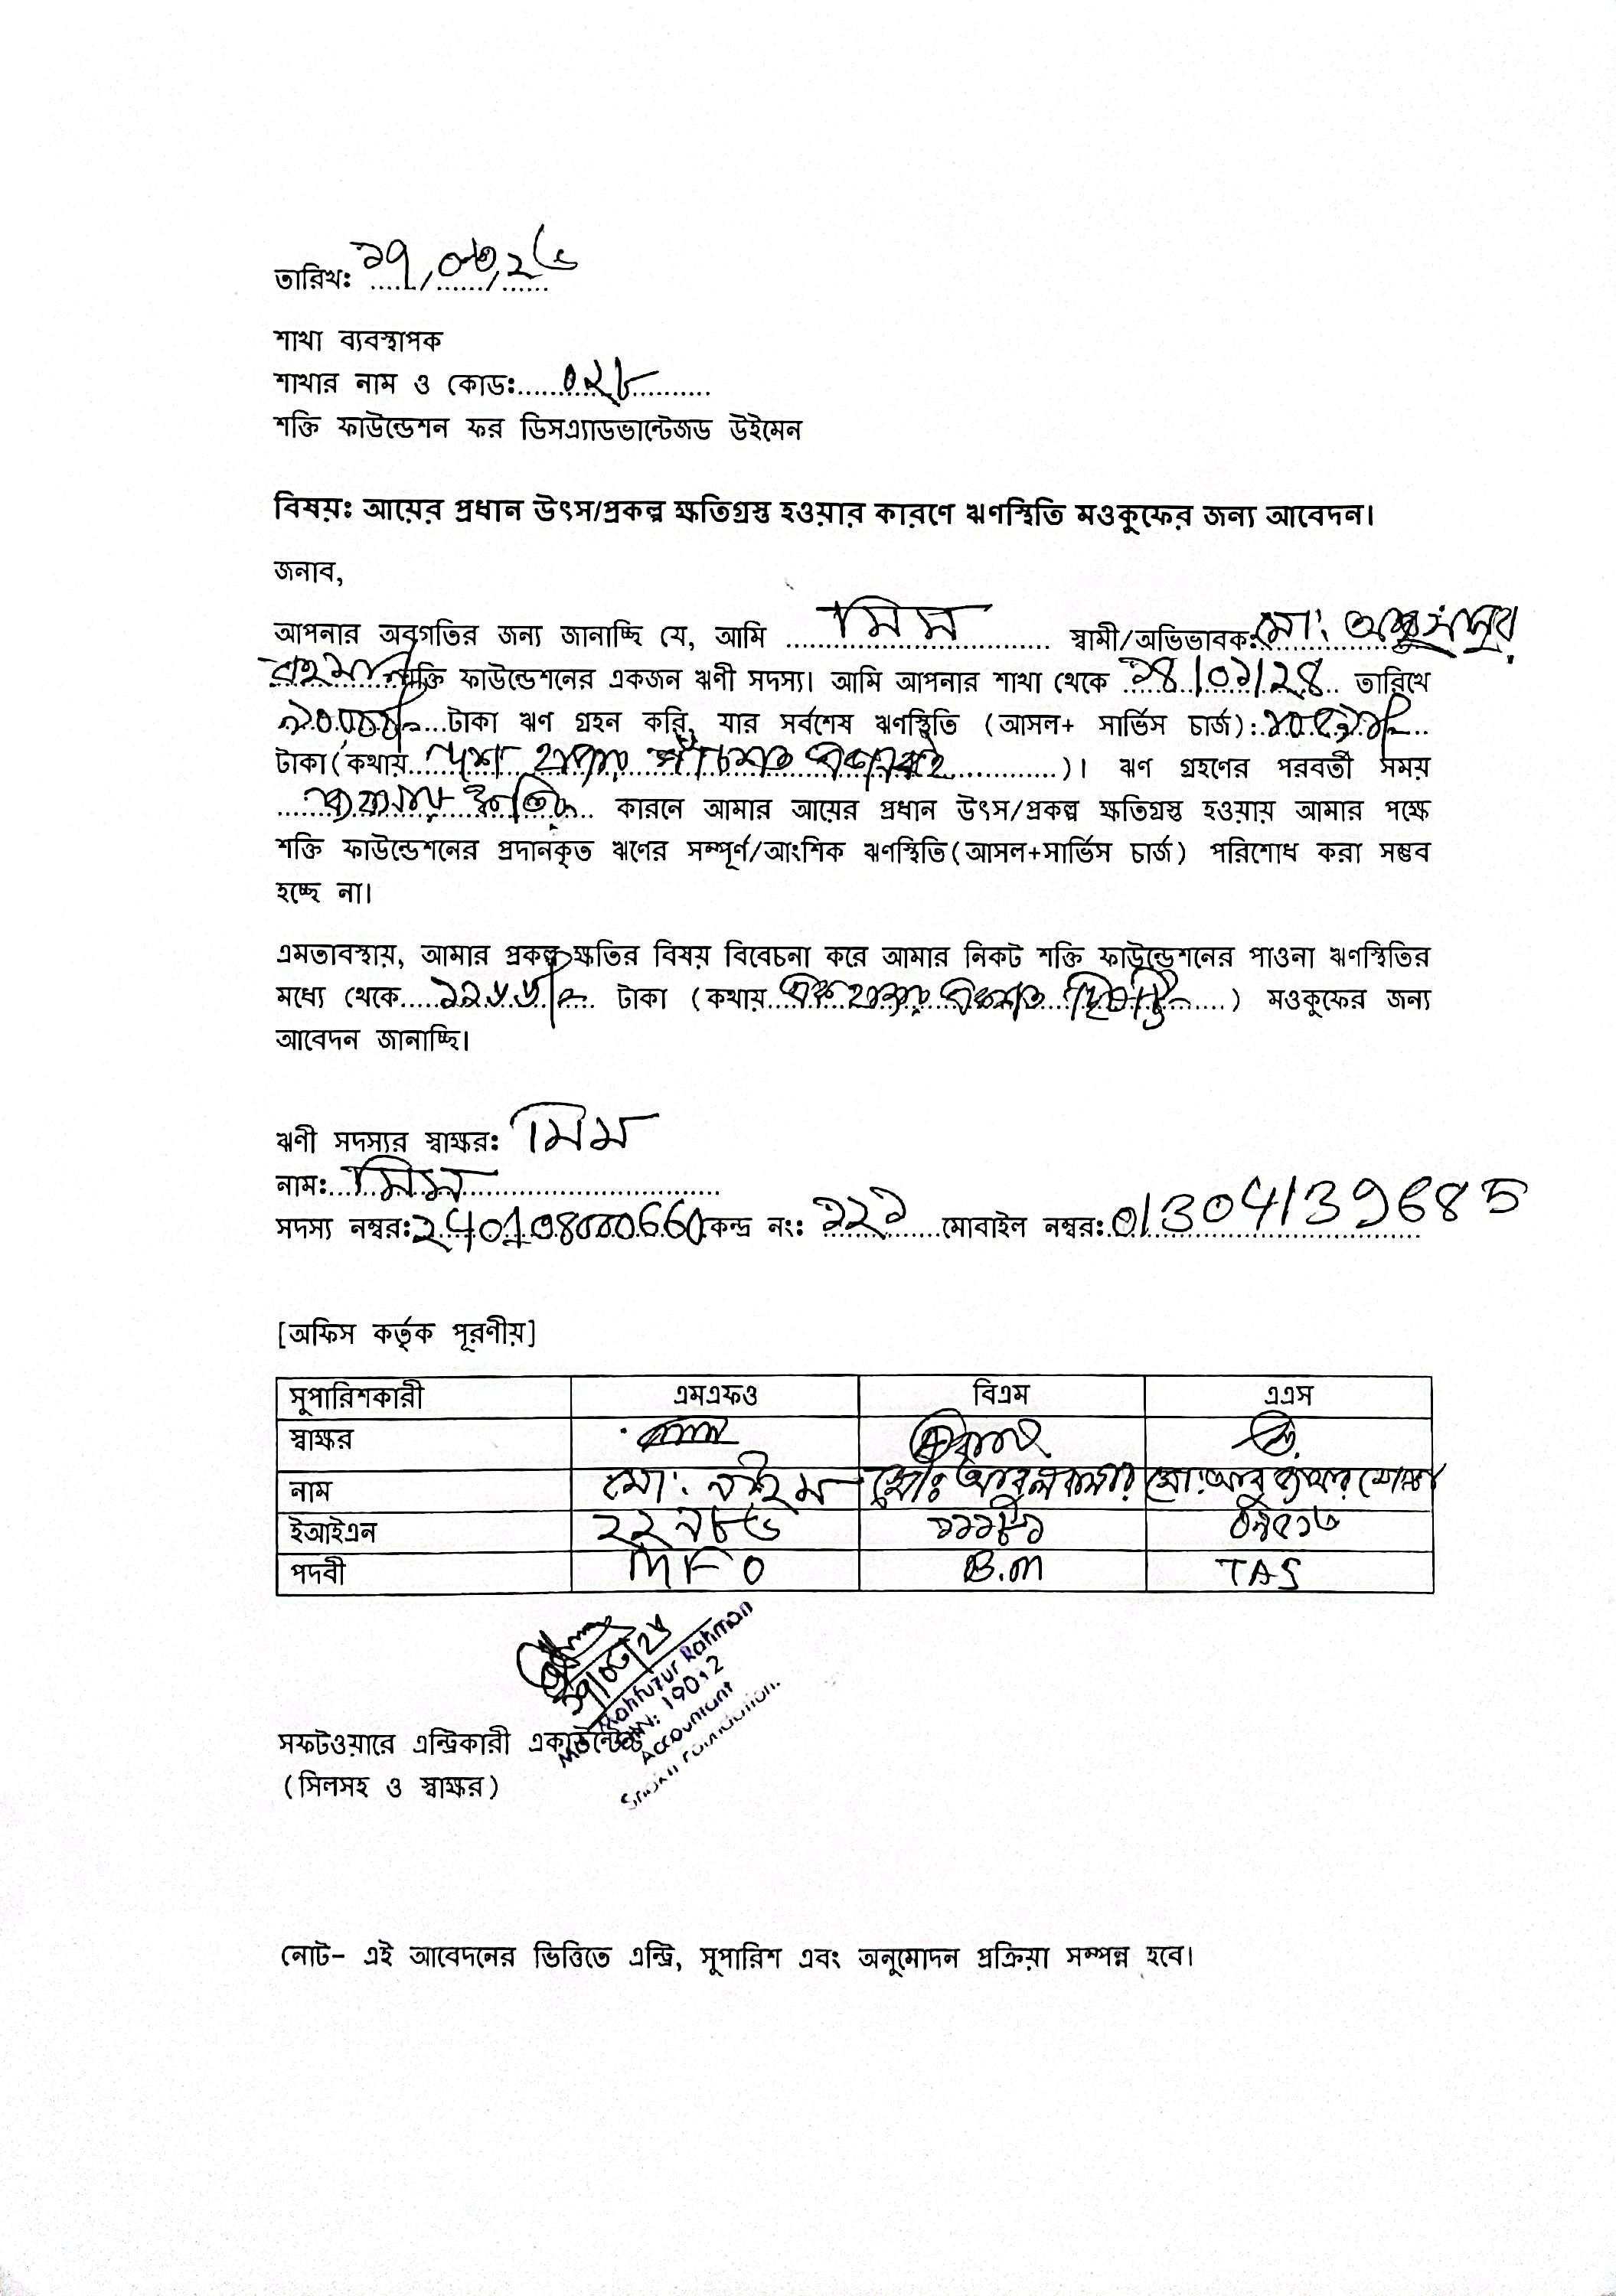 তারিখঃ ১৭/০৩/২৫
শাখা ব্যবস্থাপক
শাখার নাম ও কোডঃ ০২৮
শক্তি ফাউন্ডেশন ফর ডিসএ্যাডভান্টেজড উইমেন
বিষয়ঃ আয়ের প্রধান উৎস/প্রকল্প ক্ষতিগ্রস্ত হওয়ার কারণে ঋণস্থিতি মওকুফের জন্য আবেদন।
জনাব,
আপনার অবগতির জন্য জানাচ্ছি যে, আমি মিম স্বামী/অভিভাবক: মো:
রহমান শক্তি ফাউন্ডেশনের একজন ঋণী সদস্য। আমি আপনার শাখা থেকে ১৪/০১/২৪ তারিখে
টাকা ঋণ গ্রহন করি, যার সর্বশেষ ঋণস্থিতি (আসল+ সার্ভিস চার্জ):
টাকা(কথায় দশ হাজার পাঁচশত )। ঋণ গ্রহণের পরবর্তী সময়
কারনে আমার আয়ের প্রধান উৎস/প্রকল্প ক্ষতিগ্রস্ত হওয়ায় আমার পক্ষে
শক্তি ফাউন্ডেশনের প্রদানকৃত ঋণের সম্পূর্ণ/আংশিক ঋণস্থিতি(আসল+সার্ভিস চার্জ) পরিশোধ করা সম্ভব
হচ্ছে না।
এমতাবস্থায়, আমার প্রকল্প ক্ষতির বিষয় বিবেচনা করে আমার নিকট শক্তি ফাউন্ডেশনের পাওনা ঋণস্থিতির
মধ্যে থেকে টাকা (কথায় এক হাজার একশত ) মওকুফের জন্য
আবেদন জানাচ্ছি।
ঋণী সদস্যর স্বাক্ষরঃ মিম
নামঃ মিম
সদস্য নম্বরঃ 240108000660 কেন্দ্র নং: ১২১ মোবাইল নম্বরঃ 01304139685
[অফিস কর্তৃক পূরণীয়]
সুপারিশকারী এমএফও বিএম এএস
স্বাক্ষর
নাম মো: নাঈম মোঃ মো: আবু
ইআইএন ২২৭৮৫
পদবী MFO B.M TAS
Mahfuzur Rahman
Accountant
সফটওয়ারে এন্ট্রিকারী একাউন্টেন্ট
(সিলসহ ও স্বাক্ষর)
নোট- এই আবেদনের ভিত্তিতে এন্ট্রি, সুপারিশ এবং অনুমোদন প্রক্রিয়া সম্পন্ন হবে।